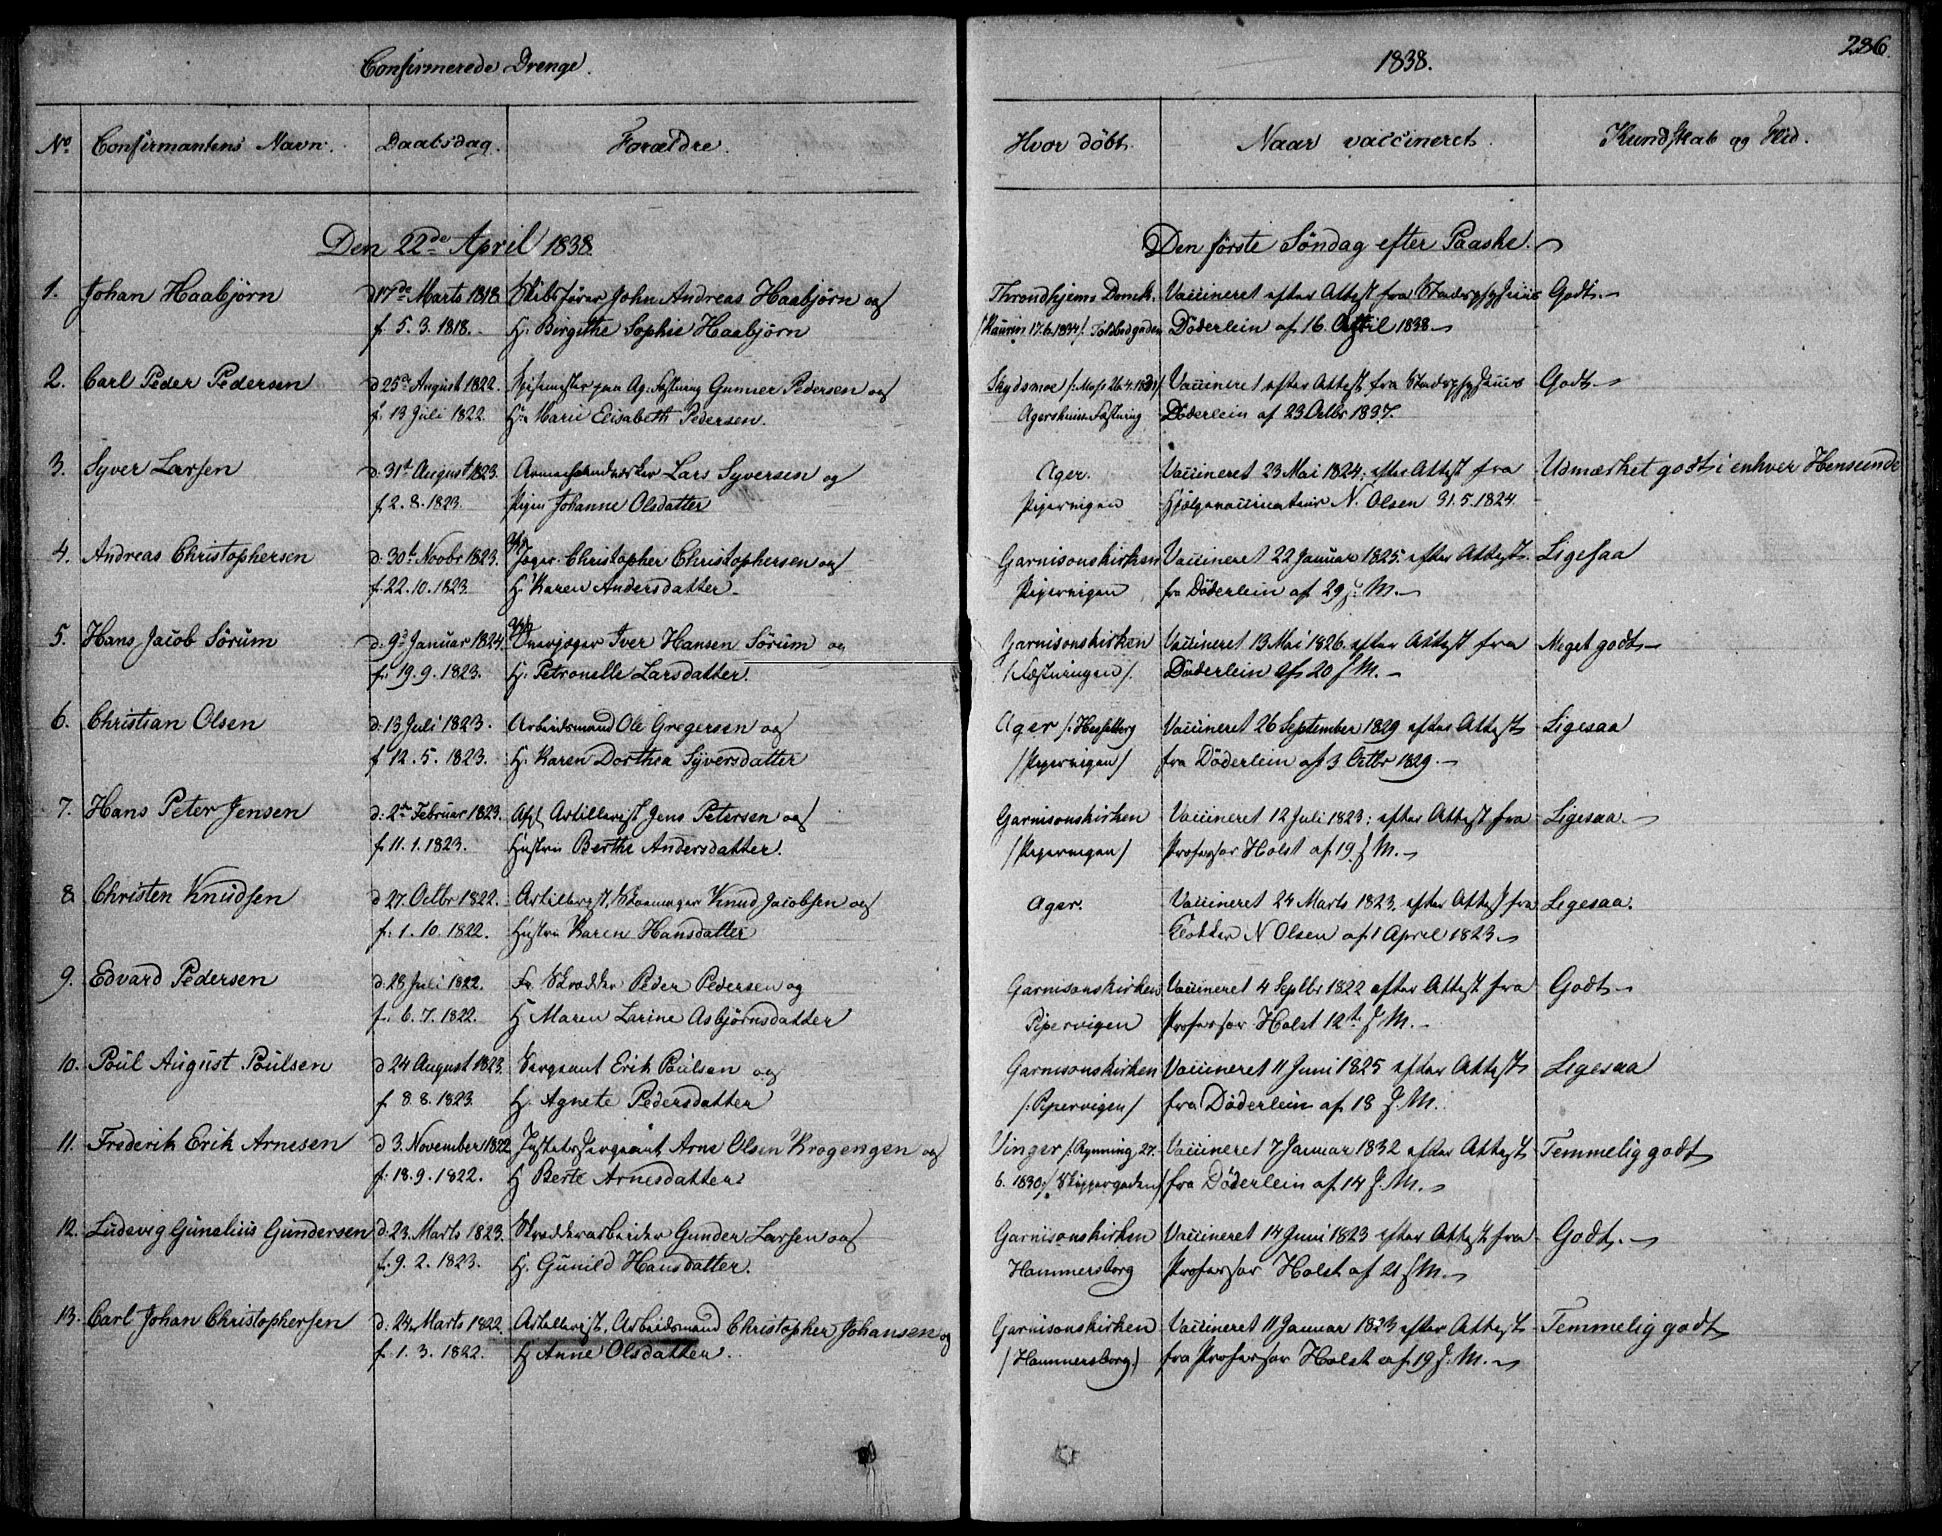 Confirmerede Drenge.
1838.
286.
No. Confirmantens Navn. Daabsdag. Forældre. Hvor döbt. Naar vaccineret. Kundskab og Flid.
Den 22de April 1838. Den förste Söndag efter Paaske.
1. Johan Haabjörn d. 17de Marts 1818. Skibsförer John Andreas Haabjörn og Throndhjems Domk. Vaccineret efter Attest fra Stadsphysicus Godt.
f. 5. 3. 1818. H. Birgithe Sophie Haabjörn 17.6.1834 Toldbodgaden Döderlein af 16. April 1838
2. Carl Peder Pedersen d. 25de August 1822. paa Ag. Fæstning Gunner Pedersen og Skydsmoe Vaccineret efter Attest fra Stadsphysicus Godt.
f. 13 Juli 1822. H. Marie Elisabeth Pedersen. Agershuus Fæstning Döderlein af 23 Octbr 1837.
3. Syver Larsen d. 31te August 1823. Lars Syversen og Ager. Vaccineret 23 Mai 1824 efter Attest fra Udmærket godt i enhver Henseende
f. 2. 8. 1823. Pigen Johanne Olsdatter Pipervigen Hjelpevaccinateur N. Olsen 31. 5. 1824.
4. Andreas Christophersen d. 30te Novbr 1823. Jæger Christopher Christophersen og Garnisonskirken Vaccineret 22 Januar 1825 efter Attest Ligesaa
f. 22. 10. 1823. H. Karen Andersdatter Pipervigen fra Döderlein af 29 s. M.
5. Hans Jacob Sörum d. 9de Januar 1824. Iver Hansen Sörum og Garnisonskirken Vaccineret 13 Mai 1826 efter Attest fra Meget godt
f. 19. 9. 1823. H. Petronelle Larsdatter. /Fæstningen/. Döderlein af 20 s. M.
6. Christian Olsen d. 13 Juli 1823. Arbeidsmand Ole Gregersen og Ager /: Hesselberg Vaccineret 26 September 1829 efter Attest Ligesaa
f. 12. 5. 1823. H. Karen Dorthea Syversdatter /Pipervigen/ fra Döderlein af 3 Octbr 1829.
7. Hans Peter Jensen d. 2den Februar 1823. Afsk. Artillerist Jens Petersen og Garnisonskirken Vaccineret 12 Juli 1823 efter Attest fra Ligesaa.
f. 11. 1. 1823. Hustru Berthe Andersdatter. /Pipervigen/ Professor Holst af 19 s. M.
8 Christen Knudsen d. 27. Octbr 1822. Artillerist, Skoemager Knud Jacobsen og Ager. Vaccineret 24 Marts 1823. efter Attest fra Ligesaa.
f. 1. 10. 1822. Hustru Karen Hansdatter Klokker N Olsen af 1 April 1823
9. Edvard Pedersen d. 28 Juli 1822. Fr. Skrædder Peder Pedersen og Garnisonskirken Vaccineret 4 Septbr 1822 efter Attest fra Godt
f. 6. 7. 1822. H. Maren Larine Asbjörnsdatter Pipervigen Professor Holst 12te s. M.
10. Poul August Poulsen d. 24 August 1823. Sergeant Erik Poulsen og Garnisonskirken Vaccineret 11 Juni 1825 efter Attest Ligesaa
f. 8. 8. 1823. H. Agnete Pedersdatter /: Pipervigen/ fra Döderlein af 18 s. M.
11. Frederik Erik Arnesen d. 3. November 1822. Arne Olsen Krogengen og Vinger /: Rynning 27. Vaccineret 7 Januar 1832 efter Attest Temmelig godt
f. 18. 9. 1822. H Berte Arnesdatter 6. 1830 Skippergaden fra Döderlein af 14 s. M.
12. Ludevig Gunelius Gundersen d. 23. Marts 1823. Skrædderarbeider Gunder Larsen og Garnisonskirken Vaccineret 14 Juni 1823 efter Attest fra Godt.
f. 9. 2. 1823. H. Gunild Hansdatter. Hammersborg Professor Holst af 21 s M.
13. Carl Johan Christophersen d. 24. Marts 1822. Artillerist, Arbeidsmand Christopher Johansen og Garnisonskirken Vaccineret 11 Januar 1823 efter Attest Temmelig godt
f. 1. 3. 1822. H Anne Olsdatter. /Hammersborg/ fra Professor Holst af 19 s. M.